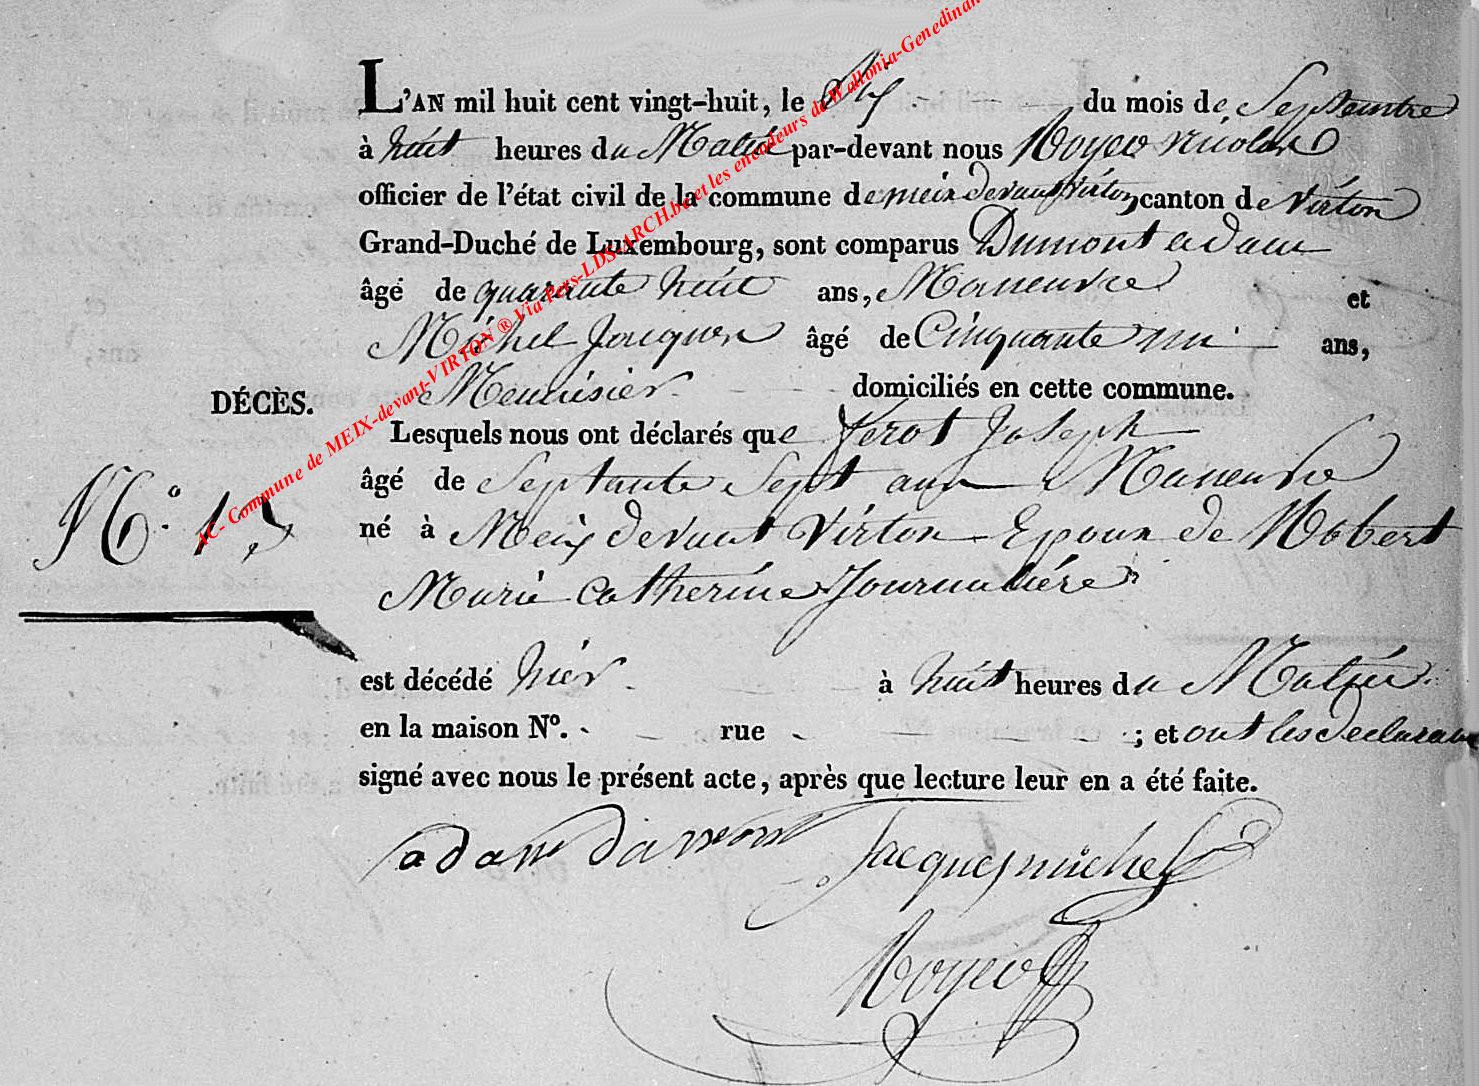 L'AN mil huit cent vingt-huit, le Six du mois de Septembre
à huit heures du Matin par-devant nous Noyer nicolas
officier de l'état civil de la commune de meix devant virton canton de Virton
Grand-Duché de Luxembourg, sont comparus Dumont adam
âgé de quarante huit ans, Maneuvre et
Michel Jacques âgé de Cinquante un ans,
DÉCÈS. Menuisier domiciliés en cette commune.
Lesquels nous ont déclarés que ferot Joseph
âgé de Septante Sept ans Maneuvre
N.° 15 né à Meix devant Virton Epoux de Robert
Marie Catherine Journalière
est décédé hier à huit heures du Matin
en la maison N°. rue ; et ont les declarans
signé avec nous le présent acte, après que lecture leur en a été faite.
adam dumont Jacques michel
AC- Commune de MEIX-devant-VIRTON ® Via Pers-LDS-ARCH.be et les encodeurs de Wallonia-Genedinan